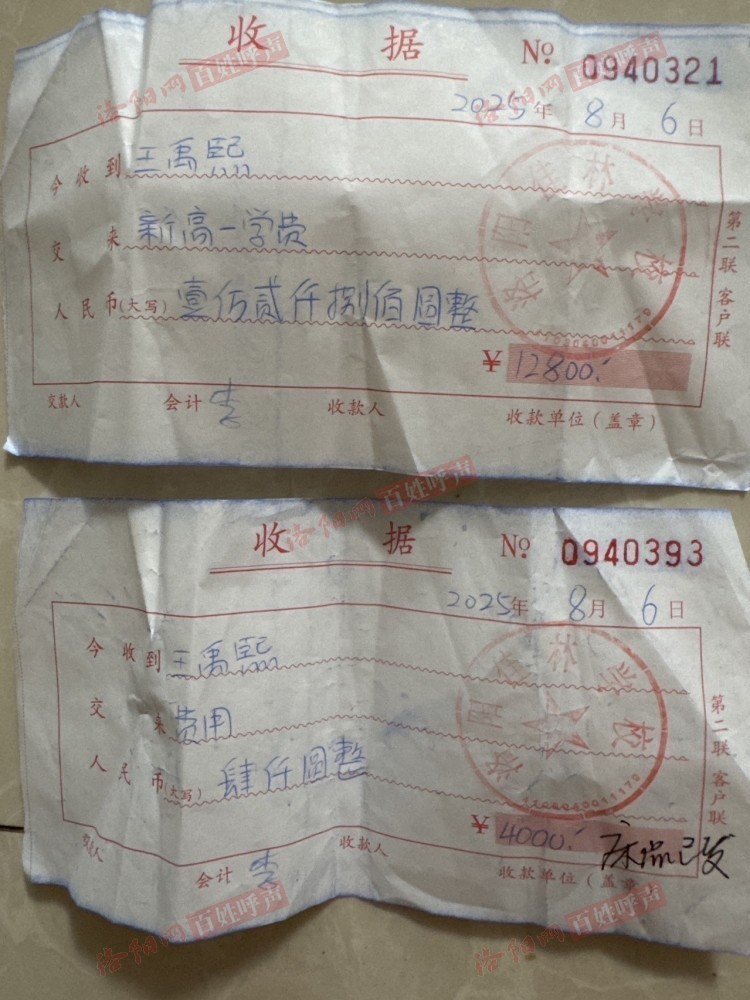 收 据 № 0940321
2025年 8月 6日
今收到 王禹熙
交 来 新高一学费
人民币(大写) 壹仟贰仟捌佰圆整
¥ 12800.
交款人 会计 李 收款人 收款单位(盖章)
第二联 客户联
洛阳网 百姓呼声
收 据 № 0940393
2025年 8月 6日
今收到 王禹熙
交 来 费用
人民币(大写) 肆仟圆整
¥ 4000.
会计 李 收款人 收款单位(盖章
第二联 客户联
洛阳网 百姓呼声